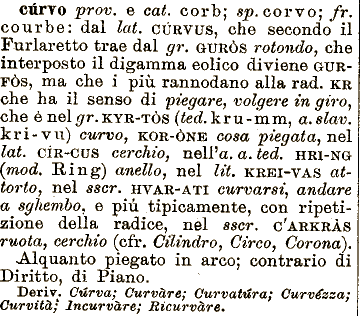 cúrvo prov. e cat. corb; sp. corvo; fr.
courbe: dal lat. CÚRVUS, che secondo il
Furlaretto trae dal gr. GURÒS rotondo, che
interposto il digamma eolico diviene GUR-
FÒS, ma che i più rannodano alla rad. KR
che ha il senso di piegare, volgere in giro,
che è nel gr. KYR-TÒS (ted. kru-mm, a. slav.
kri-vu) curvo, KOR-ÒNE cosa piegata, nel
lat. CÍR-CUS cerchio, nell'a. a. ted. HRI-NG
(mod. Ring) anello, nel lit. KREI-VAS at-
torto, nel sscr. HVAR-ATI curvarsi, andare
a sghembo, e più tipicamente, con ripeti-
zione della radice, nel sscr. C'ARKRÀS
ruota, cerchio (cfr. Cilindro, Circo, Corona).
Alquanto piegato in arco; contrario di
Diritto, di Piano.
Deriv. Cúrva; Curvàre; Curvatúra; Curvézza;
Curvità; Incurvàre; Ricurvàre.